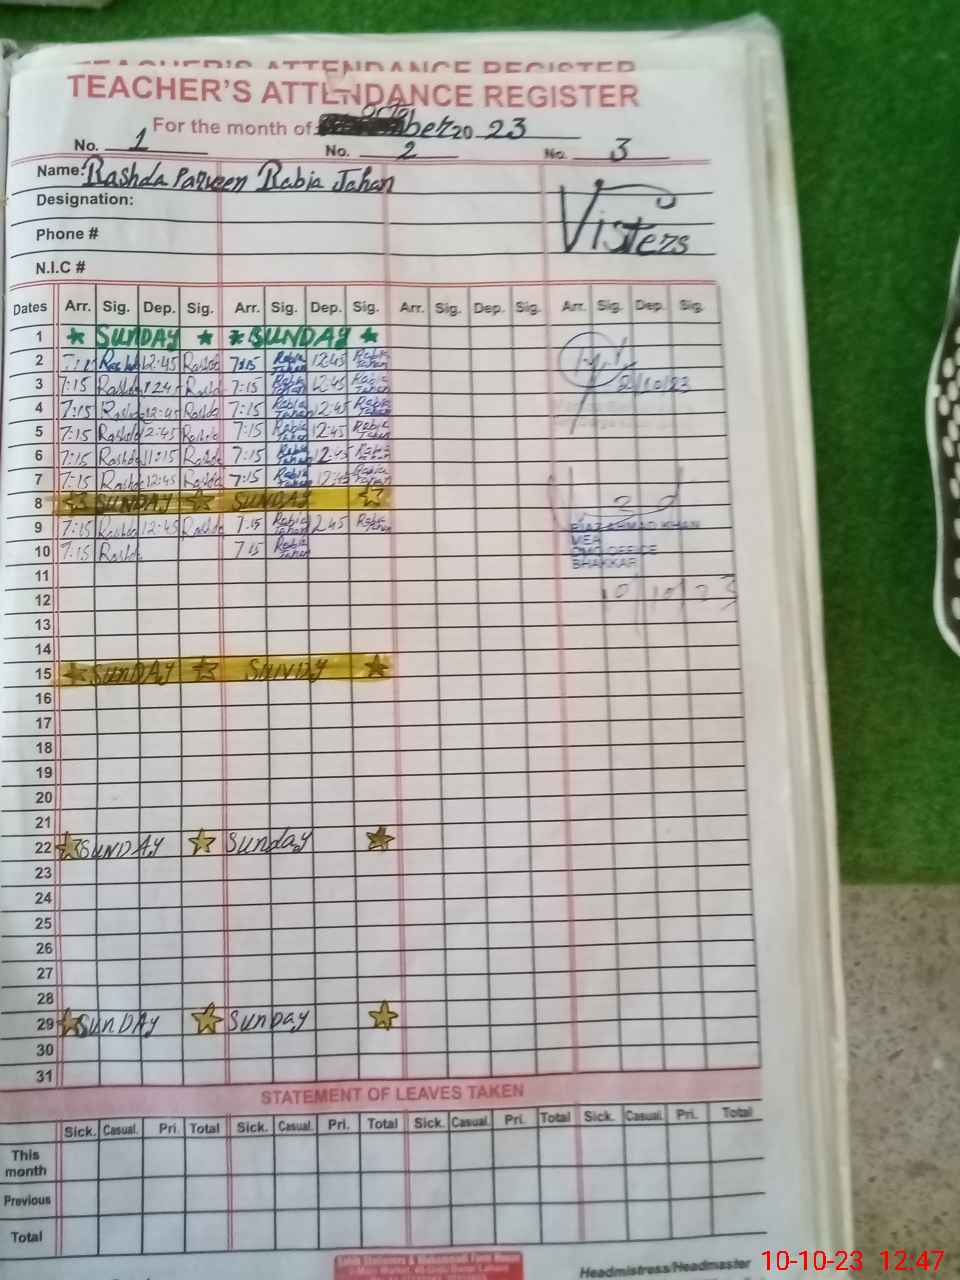 TEACHER'S ATTENDANCE REGISTER
TEACHER'S ATTENDANCE REGISTER
For the month of October 2023
No. 1 No. 2 No. 3
Name: Rashda Parveen Rabia Jahan
Designation:
Visters
Phone #
N.I.C #
Dates Arr. Sig. Dep. Sig. Arr. Sig. Dep. Sig. Arr. Sig. Dep. Sig. Arr. Sig. Dep. Sig.
1 SUNDAY SUNDAY
2 Rashda 12:45 Rashda 7:15 Rabia Jahan 12:45 Rabia Jahan
3 7:15 Rashda Rashda 7:15 Rabia Jahan 12:45 Rabia Jahan 2/10/23
4 7:15 Rashda 12:45 Rashda 7:15 Rabia Jahan 12:45 Rabia Jahan
5 7:15 Rashda 12:45 Rashda 7:15 Rabia Jahan 12:45 Rabia Jahan
6 7:15 Rashda 11:15 Rashda 7:15 Rabia Jahan 12:45 Rabia Jahan
7 7:15 Rashda 12:45 Rashda 7:15 Rabia Jahan 12:45 Rabia Jahan
8 SUNDAY SUNDAY
9 7:15 Rashda 12:45 Rashda 7:15 Rabia Jahan 2:45 Rabia RIAZ AHMAD KHAN
MEA
10 7:15 Rashda 7:15 Rabia Jahan DMO OFFICE
BHAKKAR
11
12 10/10/23
13
14
15 SUNDAY SUNDY
16
17
18
19
20
21
22 SUNDAY Sunday
23
24
25
26
27
28
29 SUNDAY Sunday
30
31
STATEMENT OF LEAVES TAKEN
Sick. Casual. Pri. Total Sick. Casual. Pri. Total Sick. Casual. Pri. Total Sick. Casual. Pri. Total
This month
Previous
Total
Headmistress/Headmaster
10-10-23 12:47